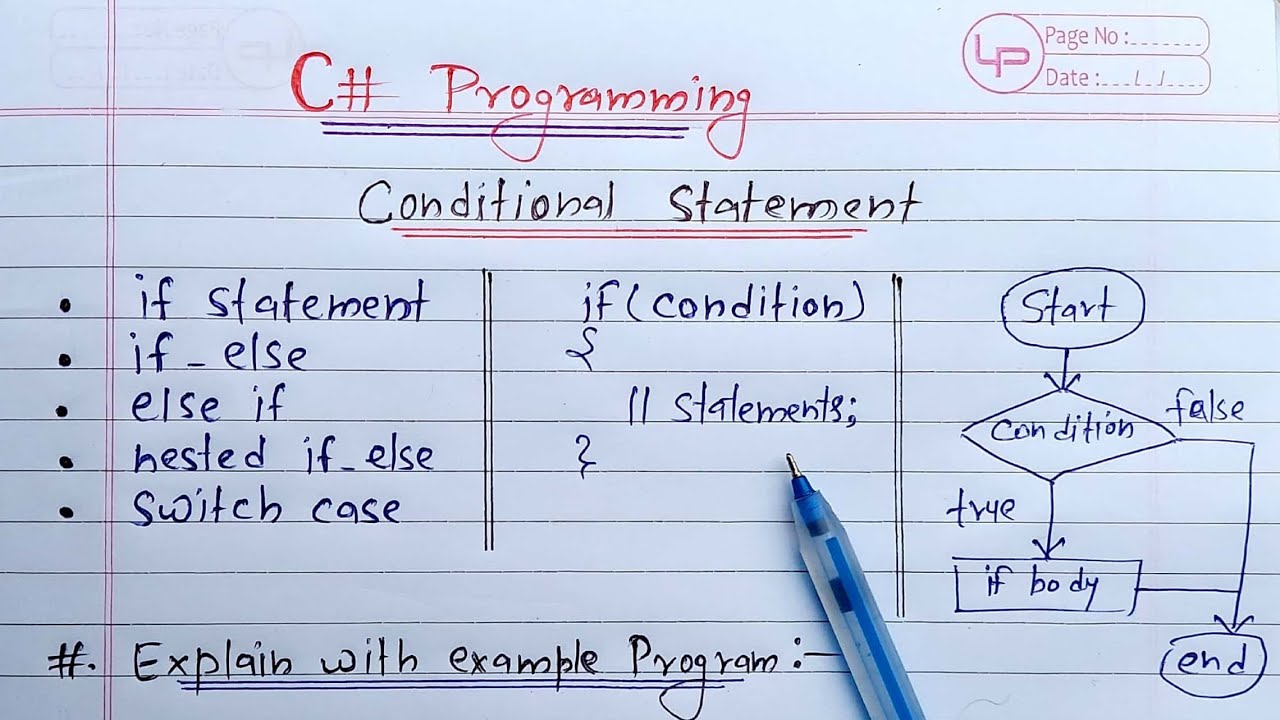 LP
Page No :
Date :
C# Programming
Conditional Statement
• if statement
• if-else
• else if
• nested if-else
• switch case
if (condition)
{
// statements;
}
Start
Condition
false
true
if body
end
#. Explain with example Program :-